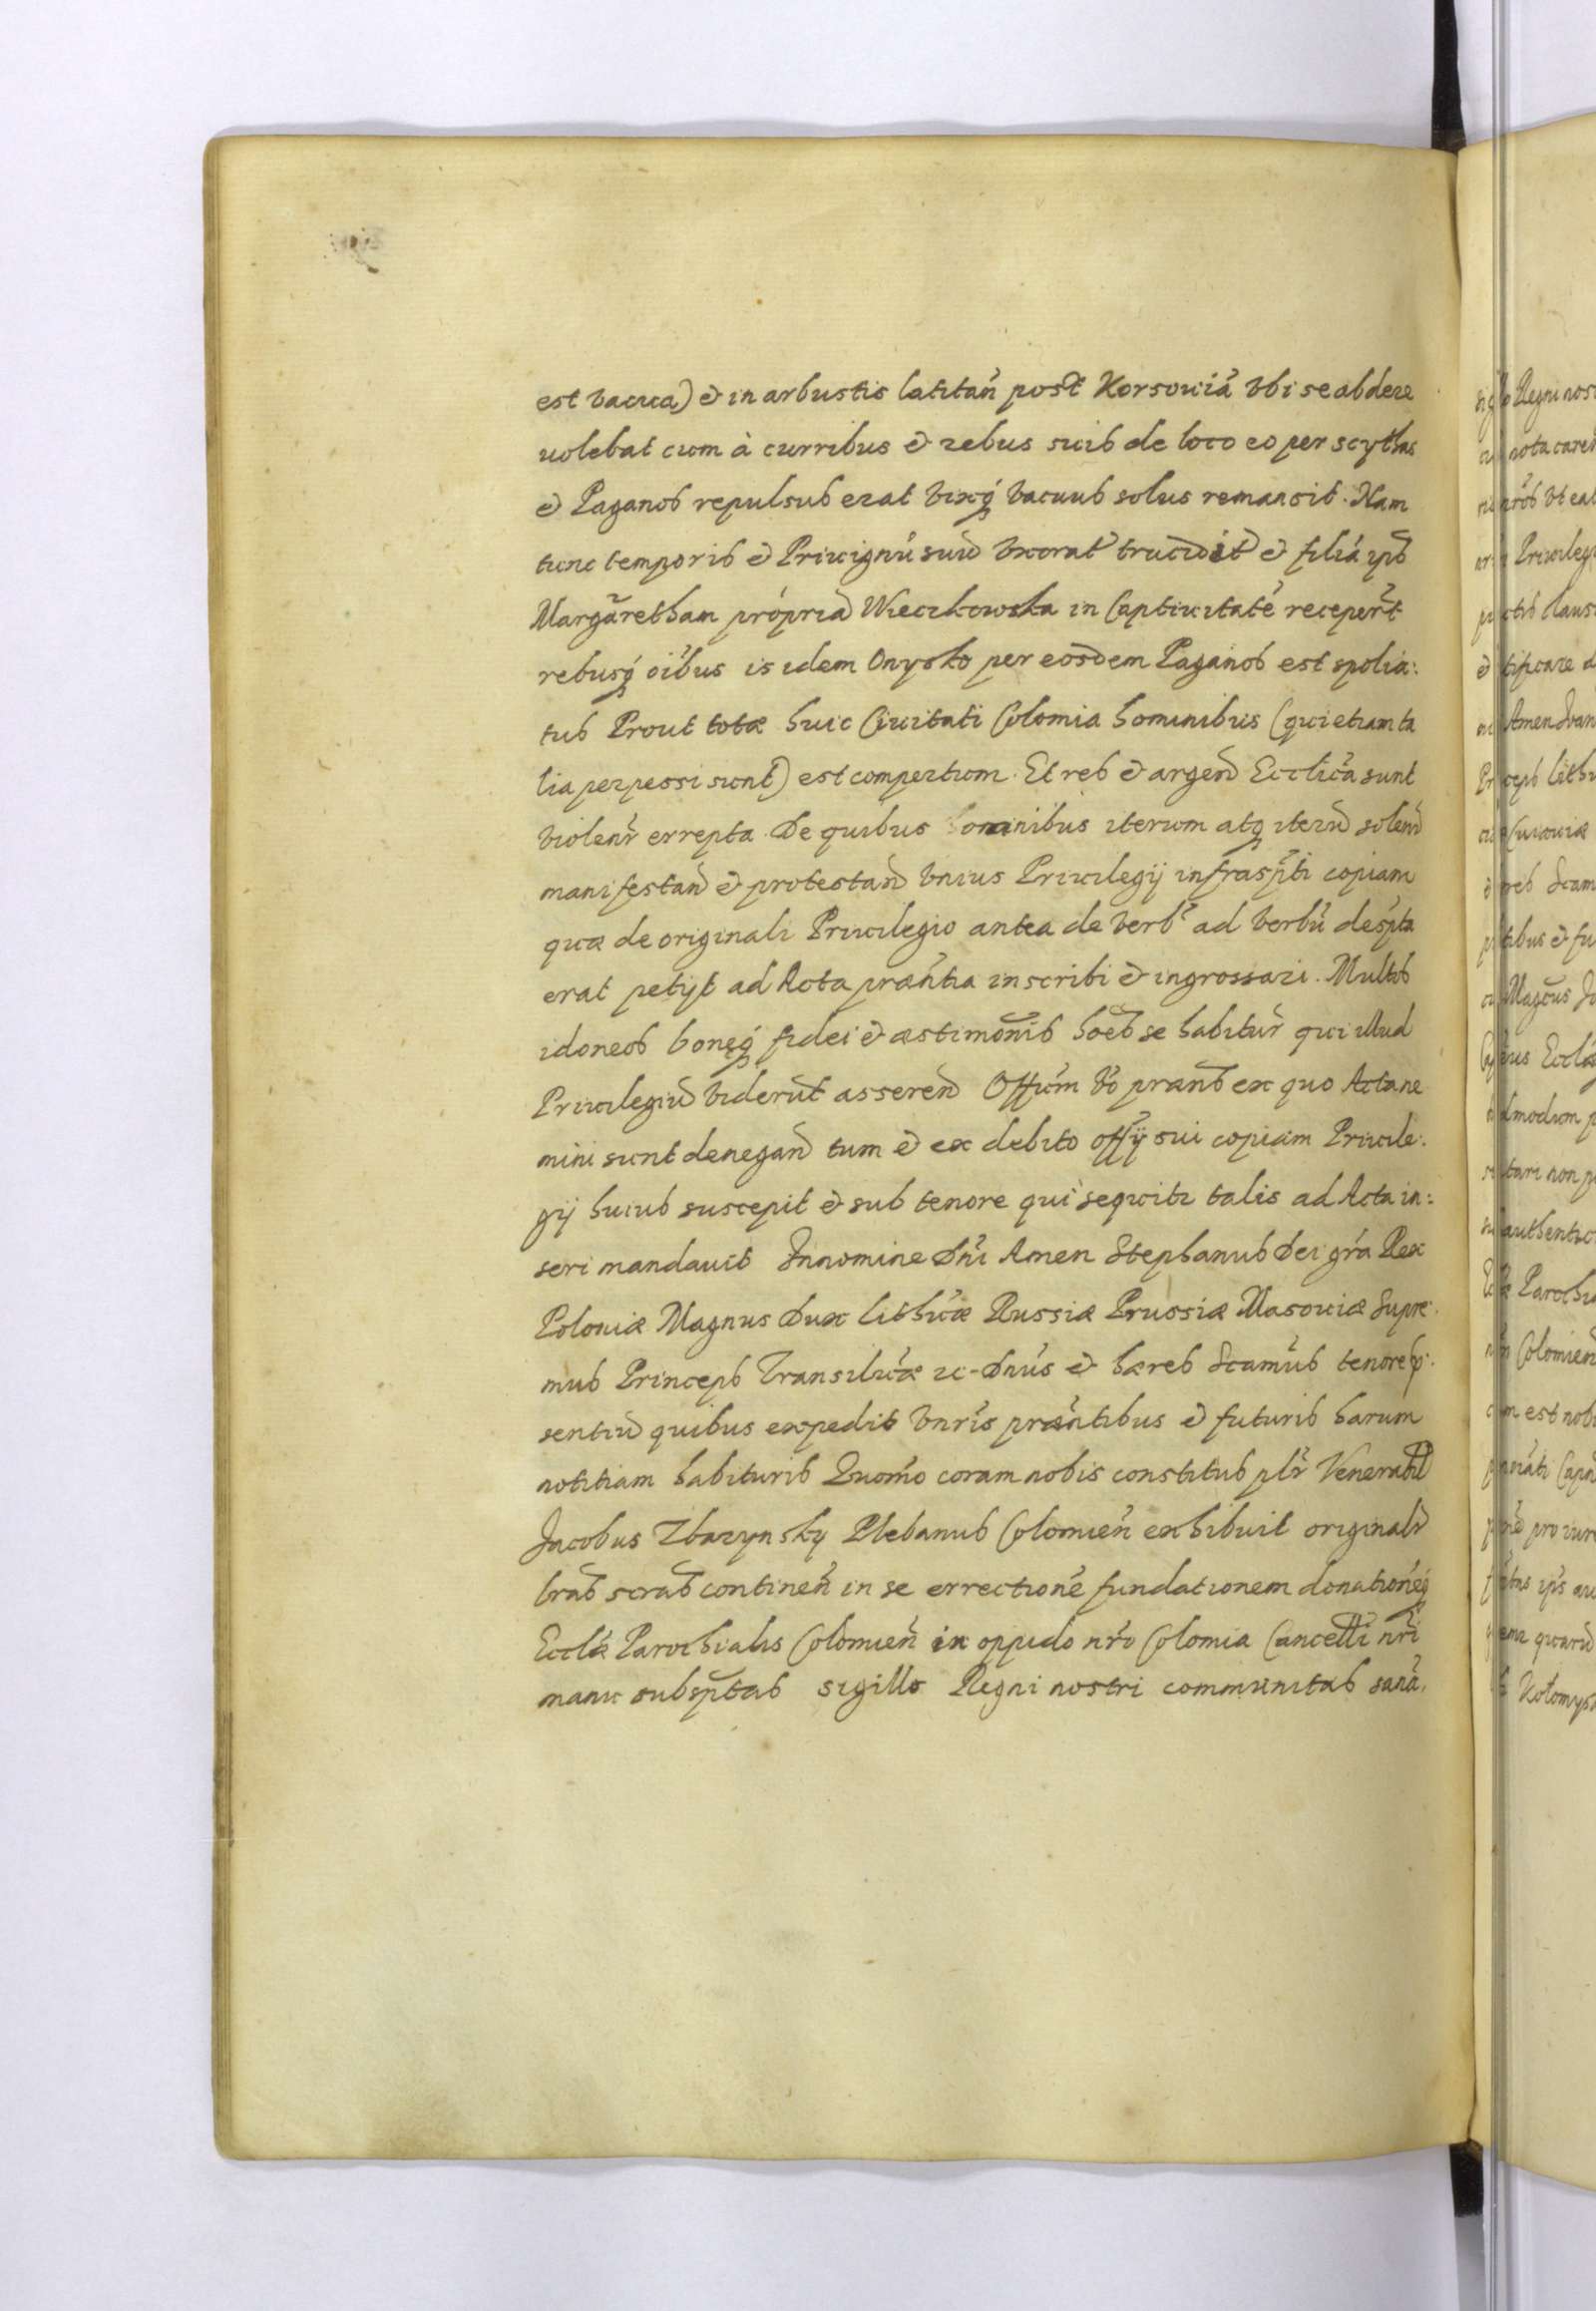 est vacua) & in arbustis latitan̄ post Korsouiā vbi se abdere
uolebat cum à curribus & rebus suis de loco eo per scythas
& Paganos repulsus erat vixq́ vacuus solus remansit. Nam
tunc temporis & Priuignū suū vxorat trucidit & filiā ips
Margāretham propriā Wieczkowska in Captiuitatē recepert̄
rebusq́ oībus is idem Onysko per eosdem Paganos est spolia:
tus Prout totæ huic Ciuitati Colomia hominibus (qui etiam ta
lia perpessi sunt) est compertum. Et res & argen̄ Eccliēa sunt
violenr̄ errepta. De quibus hominibus iterum atq iterū solen̄
manifestan̄ & protestan̄ vnius Priuilegij infrasp̄ti copiam
quæ de originali Priuilegio antea de verb̄ ad verbū desp̄ta
erat petijt ad Acta præn̄tia inscribi & ingrossari. Multos
idoneos boneq́ fidei & æstimōnis hoēs se habitur̄ qui illud
Priuilegiū viderūt asseren̄ Offiūm vō præn̄s ex quo Acta ne
mini sunt denegan̄ tum & ex debito offij sui copiam Priuile:
gij huius suscepit & sub tenore qui sequitr talis ad Acta in:
seri mandauit In nomine Dn̄i Amen Stephanus Dei grā Rex
Poloniæ Magnus Dux Lithūæ Russiæ Prussiæ Masouiæ Supre:
mus Princeps Transilūæ zc. Dn̄us & hæres Scamūs tenore p:
sentiū quibus expedit vnr̄is præn̄tibus & futuris harum
notitiam habituris Quom̄o coram nobis constitus plr̄ Venerabil
Jacobus Zbarynsky Plebanus Colomien̄ exhibuit originalr̄
lrās scrās continen̄ in se errectionē fundationem donationēq́
Ecclæ Parochialis Colomien̄ in oppido nr̄o Colomia Cancelli nr̄i
manu subsp̄tas sigillo Regni nostri communitas sanā,